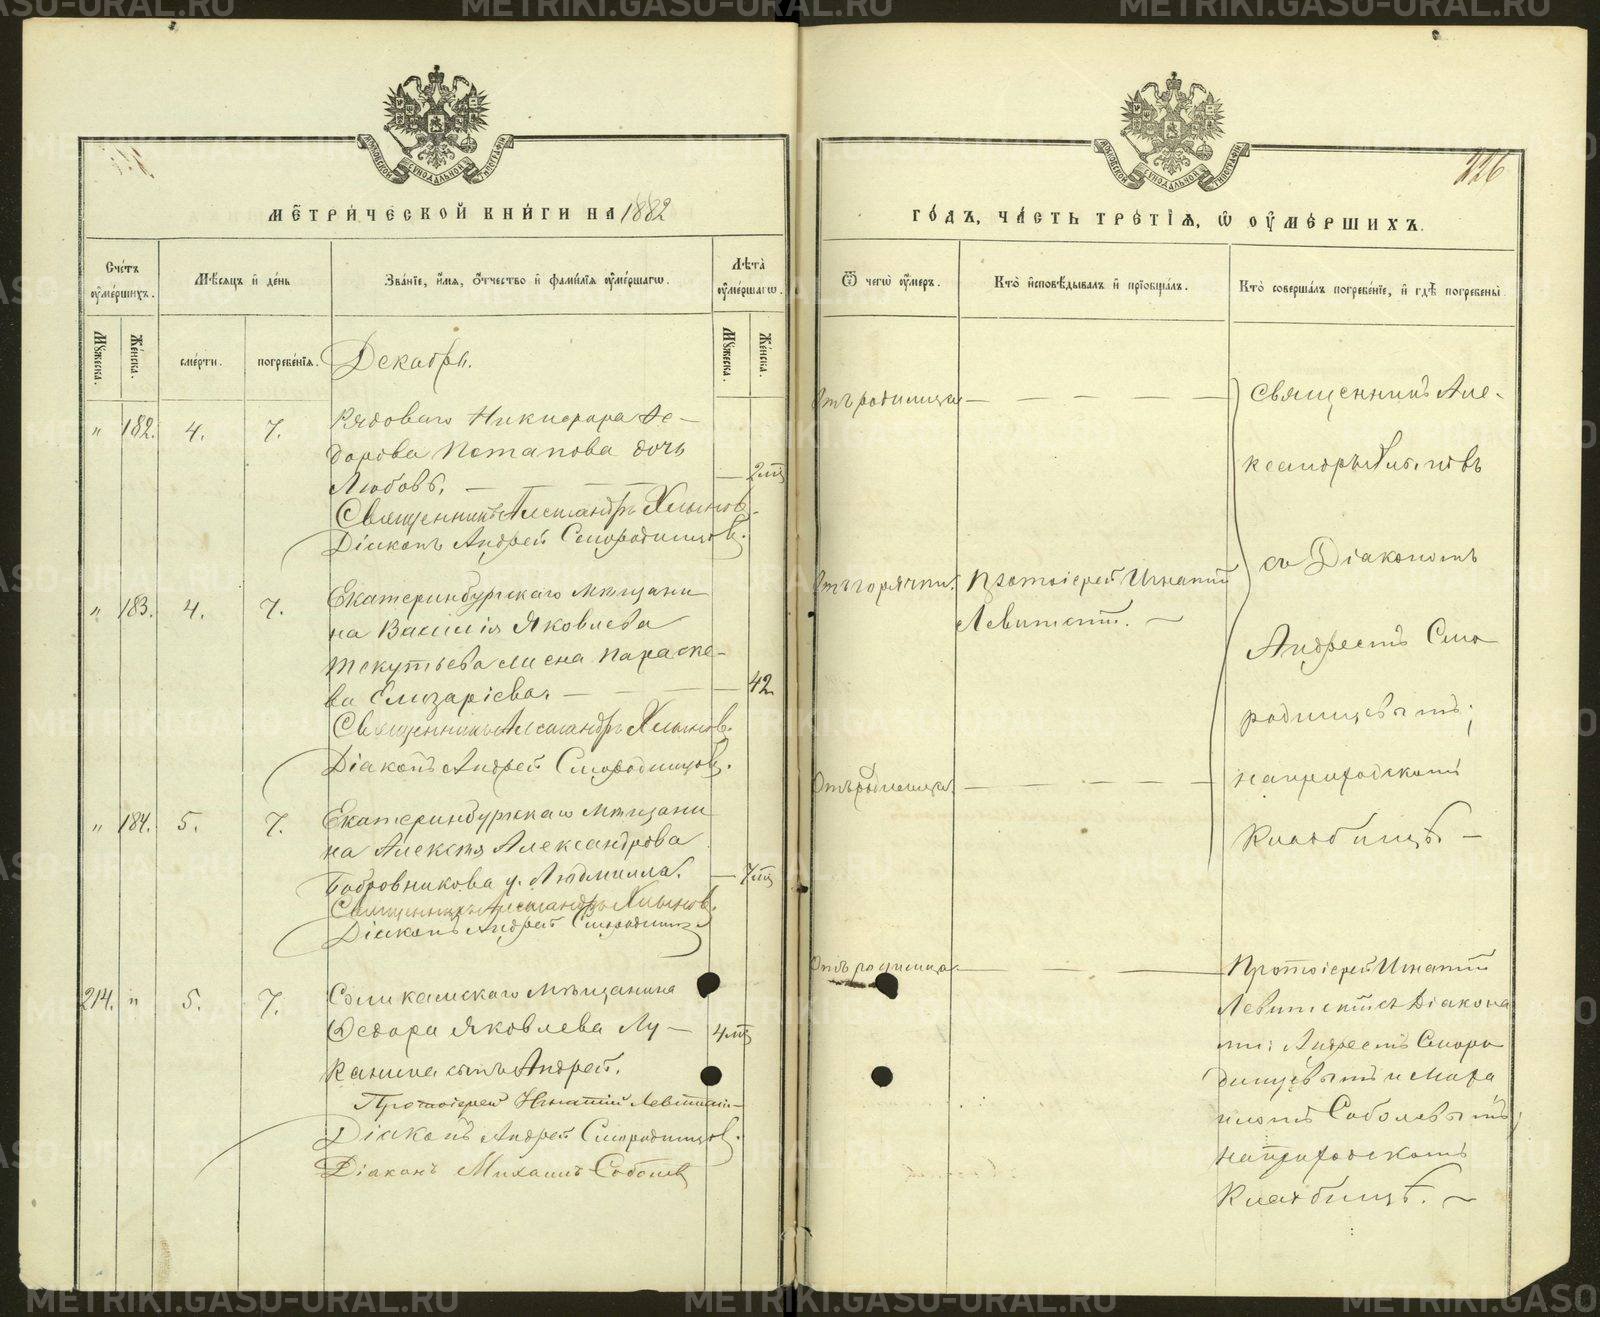 МЕТРИЧЕСКОЙ КНИГИ НА 1882
Счетъ умершихъ.
Мѣсяцъ и день
Званіе, имя, отчество и фамилія умершаго.
Лѣта умершаго.
Мужеска.
Женска.
смерти.
погребенія.
Мужеска.
Женска.
Декабрь.
" 182. 4. 7. Рядоваго Никифора Ѳе-
дорова Потапова дочь
Любовь. — 2 мц
Священникъ Александръ Хлыновъ.
Діаконъ Андрей Смородинцовъ.
" 183. 4. 7. Екатеринбургскаго мѣщани
на Василія Яковлева
Текутьева жена Параске-
ва Елизарiева. — 42
Священникъ Александръ Хлыновъ.
Діаконъ Андрей Смородинцовъ.
" 184. 5. 7. Екатеринбургскаго мѣщани
на Алексѣя Александрова
Бобровникова д. Людмилла. — 7 мц
Священникъ Александръ Хлыновъ.
Діаконъ Андрей Смородинц
214. " 5. 7. Соликамскаго мѣщанина
Ѳедора Яковлева Лу-
канина сынъ Андрей. 4 мц
Протоіерей Игнатій Левит
Діаконъ Андрей Смородинцовъ.
Діаконъ Михаилъ Соболевъ
226
ГОДЪ, ЧАСТЬ ТРЕТІЯ, Ѡ ОУМЕРШИХЪ.
Ѿ чегѡ умеръ.
Кто исповѣдывалъ и пріобщалъ.
Кто совершалъ погребеніе, и гдѣ погребены.
Отъ родимца — — — —
Священникъ Але-
ксандръ Хлыновъ
съ Діакономъ
Андреемъ Смо
родинцевымъ;
на приходскомъ
кладбищѣ. —
Отъ горячки. Протоіерей Игнатій
Левитскій. —
Отъ родимца — — — —
Отъ родимца. — — —
Протоіерей Игнатій
Левитскій съ Діакона
ми: Андреемъ Сморо
динцевымъ и Миха
иломъ Соболевымъ;
на приходскомъ
кладбищѣ. —
METRIKI.GASU-URAL.RU